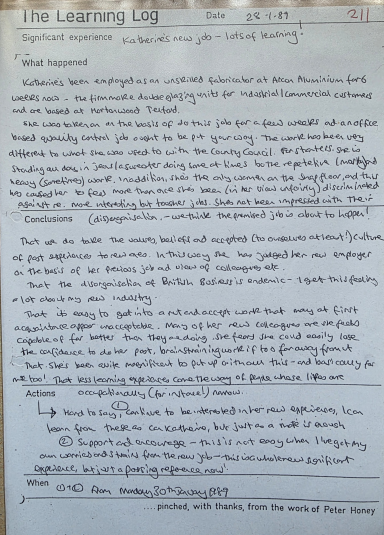 The Learning Log Date 28-1-89 211
Significant experience Katherine's new job - lots of learning.
What happened
Katherine's been employed as an unskilled fabricator at Alcan Aluminium for 6
weeks now - the firm make double glazing units for Industrial/commercial customers
and are based at Hortonwood Telford.
She was taken on on the basis of do this job for a few weeks and an office
based quality control job ought to be put your way. The work has been very
different to what she was used to with the County Council. For starters she is
standing all day in jeans/sweater doing some at times both repetetive (mostly) and
heavy (sometimes) work. In addition, she's the only woman on the shop floor, and this
has caused her to feel more than once she's been (in her view unfairly) discriminated
against re. more interesting but tougher jobs. She's not been impressed with their
Conclusions (dis)organisation. - we think the promised job is about to happen!
That we do take the values, beliefs and accepted (to ourselves at least!) culture
of past experiences to new ones. In this way she has judged her new employer
on the basis of her previous job and view of colleagues etc.
That the disorganisation of British Business is endemic - I get this feeling
a lot about my new industry.
That it is easy to get into a rut and accept work that may at first
acquaintance appear unacceptable. Many of her new colleagues are she feels
capable of far better than they are doing. She fears she could easily lose
the confidence to do her past, brain straining work if too far away from it
That she's been quite magnificent to put up with all this - and basically for
me too! That less learning experiences come the way of people whose lives are
Actions occupationally (for instance!) narrow.
Hard to say, ① continue to be interested in her new experiences, I can
learn from these as can Katherine, but just as a mate is enough
② Support and encourage - this is not easy when I've got my
own worries and strains from the new job - this is a whole new significant
experience, but just a passing reference now!
When ①+② From Monday 30th January 1989
....pinched, with thanks, from the work of Peter Honey